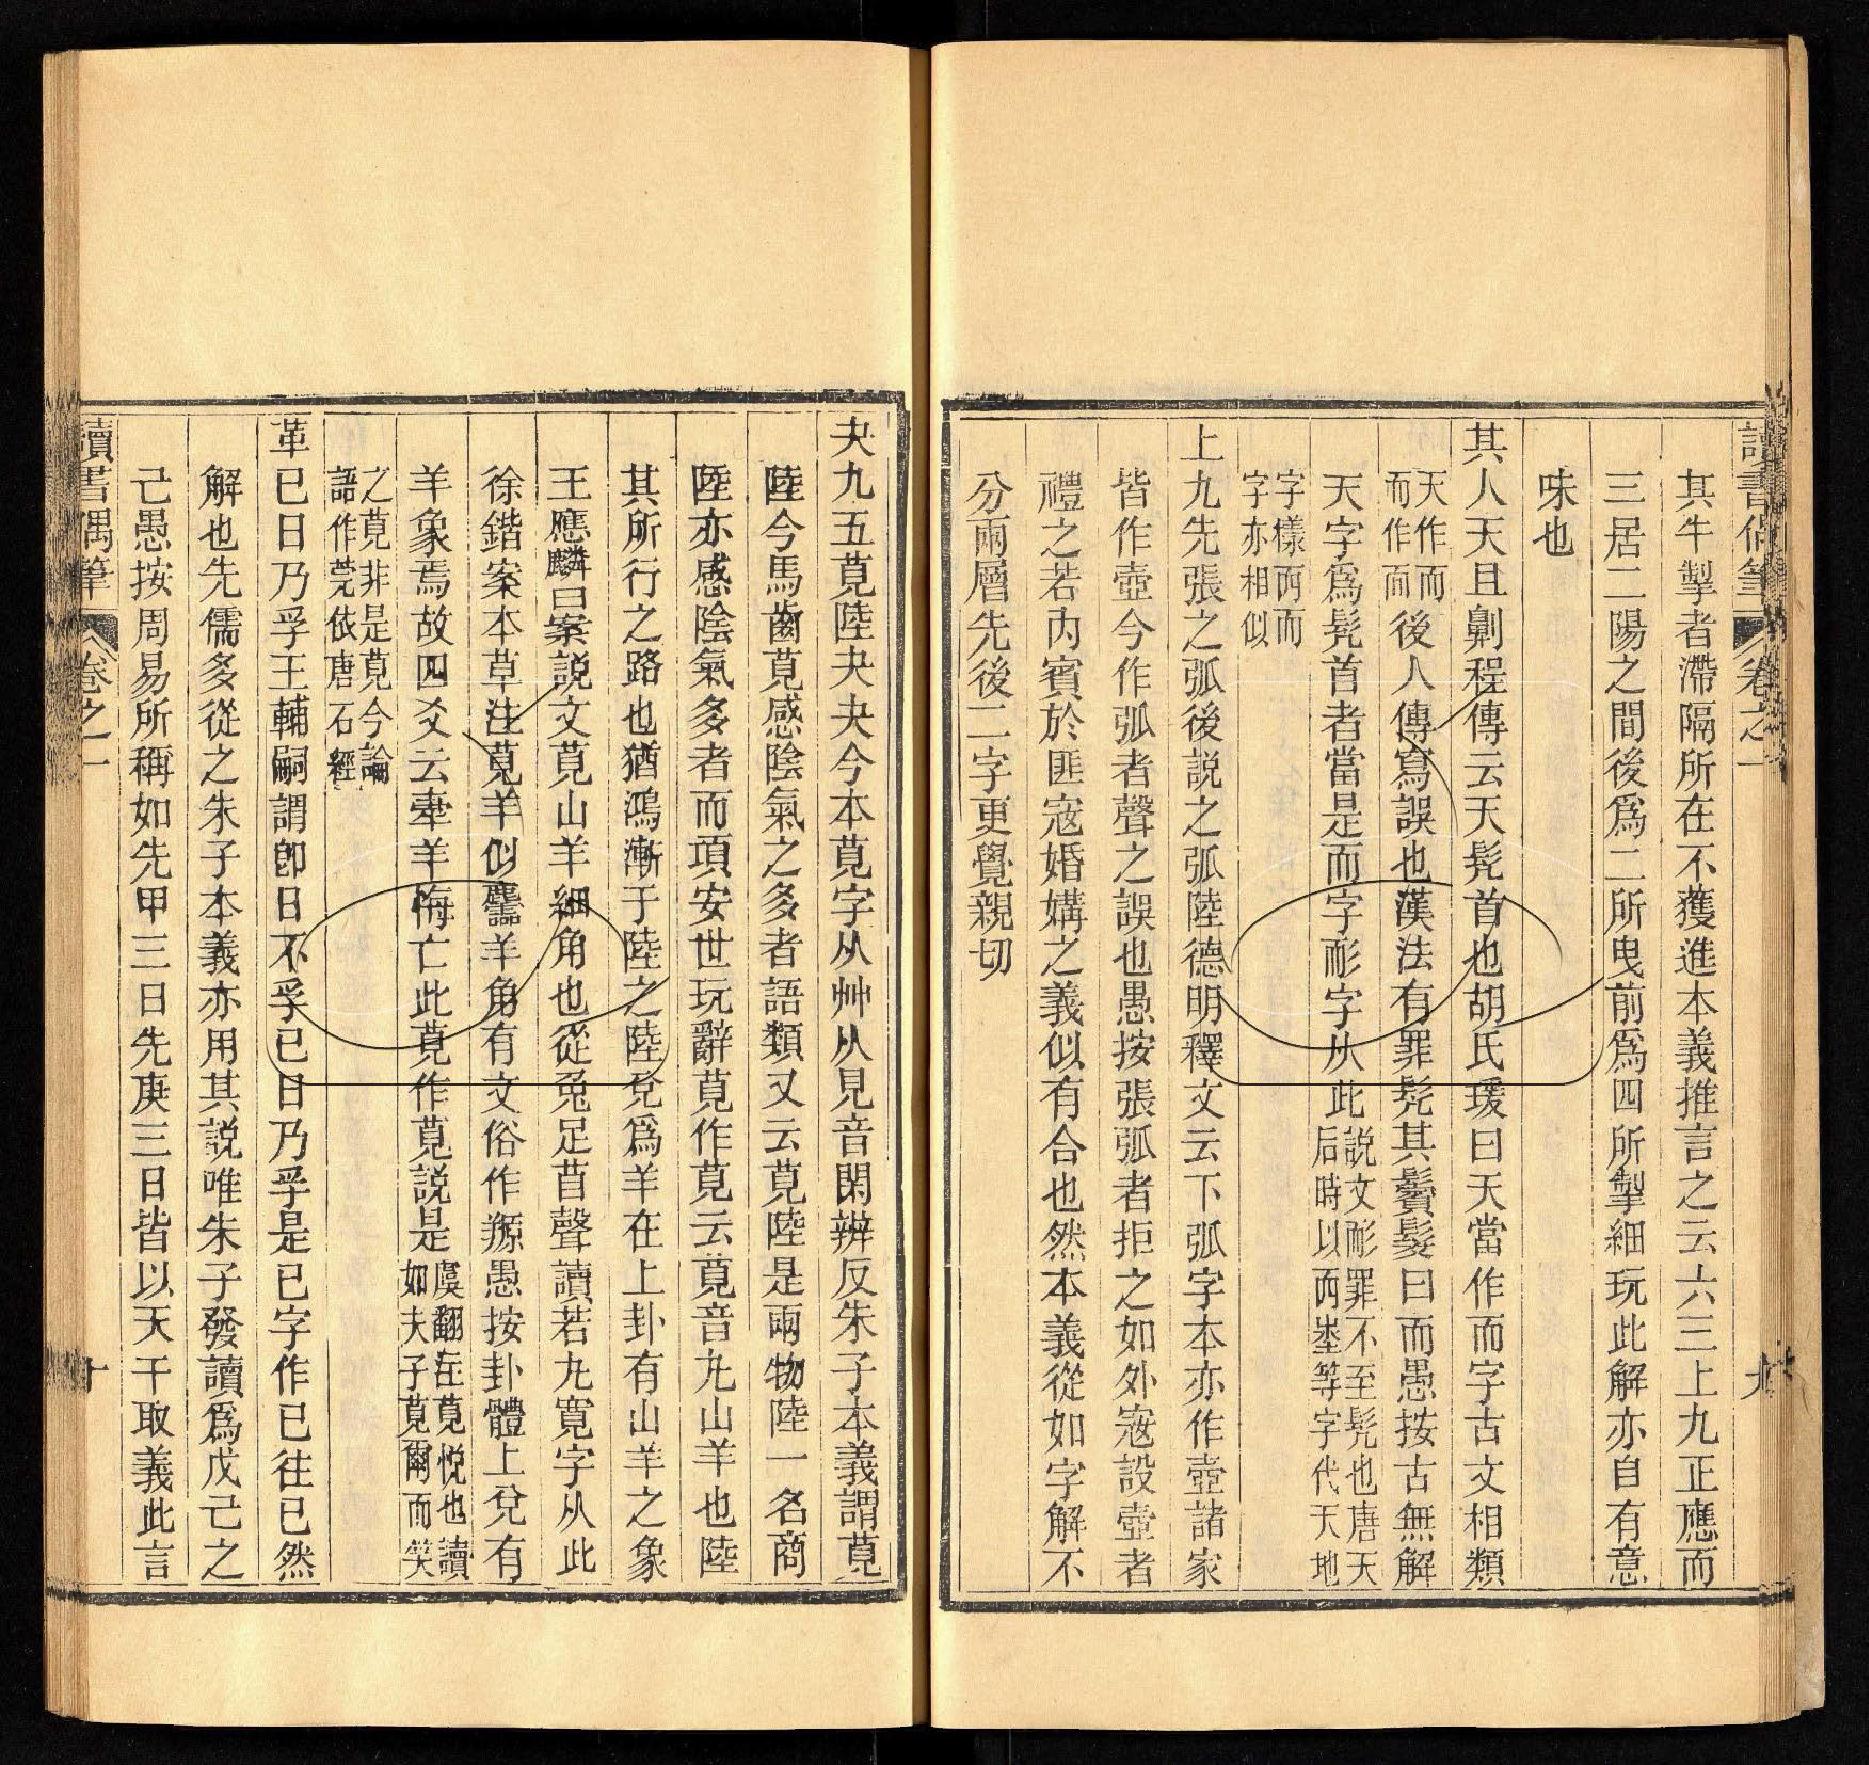 讀書偶筆 卷之一 九
其牛掣者滯隔所在不獲進本義推言之云六三上九正應而
三居二陽之間後為二所曳前為四所掣細玩此解亦自有意
味也
其人天且劓程傳云天髠首也胡氏瑗曰天當作而字古文相類
天作而
而作而
後人傳寫誤也漢法有罪髠其鬢髮曰而愚按古無解
天字為髠首者當是而字耏字从此
説文耏罪不至髠也唐天
后時以𠀑埊等字代天地
字樣𠀑而
字亦相似
上九先張之弧後説之弧陸德明釋文云下弧字本亦作壺諸家
皆作壺今作弧者聲之誤也愚按張弧者拒之如外寇設壺者
禮之若内賓於匪寇婚媾之義似有合也然本義從如字解不
分兩層先後二字更覺親切
夬九五莧陸夬夬今本莧字从艸从見音閑辨反朱子本義謂莧
陸今馬齒莧感陰氣之多者語類又云莧陸是兩物陸一名商
陸亦感陰氣多者而項安世玩辭莧作萈云萈音丸山羊也陸
其所行之路也猶鴻漸于陸之陸兌為羊在上卦有山羊之象
王應麟曰案説文萈山羊細角也從兔足苜聲讀若丸寬字从此
徐鍇案本草注萈羊似麢羊角有文俗作羱愚按卦體上兌有
羊象焉故四爻云牽羊悔亡此莧作萈説是
虞翻注莧悅也讀
如夫子莧爾而笑
之莧非是莧今論
語作莞依唐石經
革巳日乃孚王輔嗣謂即日不孚巳日乃孚是巳字作已往已然
解也先儒多從之朱子本義亦用其説唯朱子發讀為戊己之
己愚按周易所稱如先甲三日先庚三日皆以天干取義此言
讀書偶筆 卷之一 十